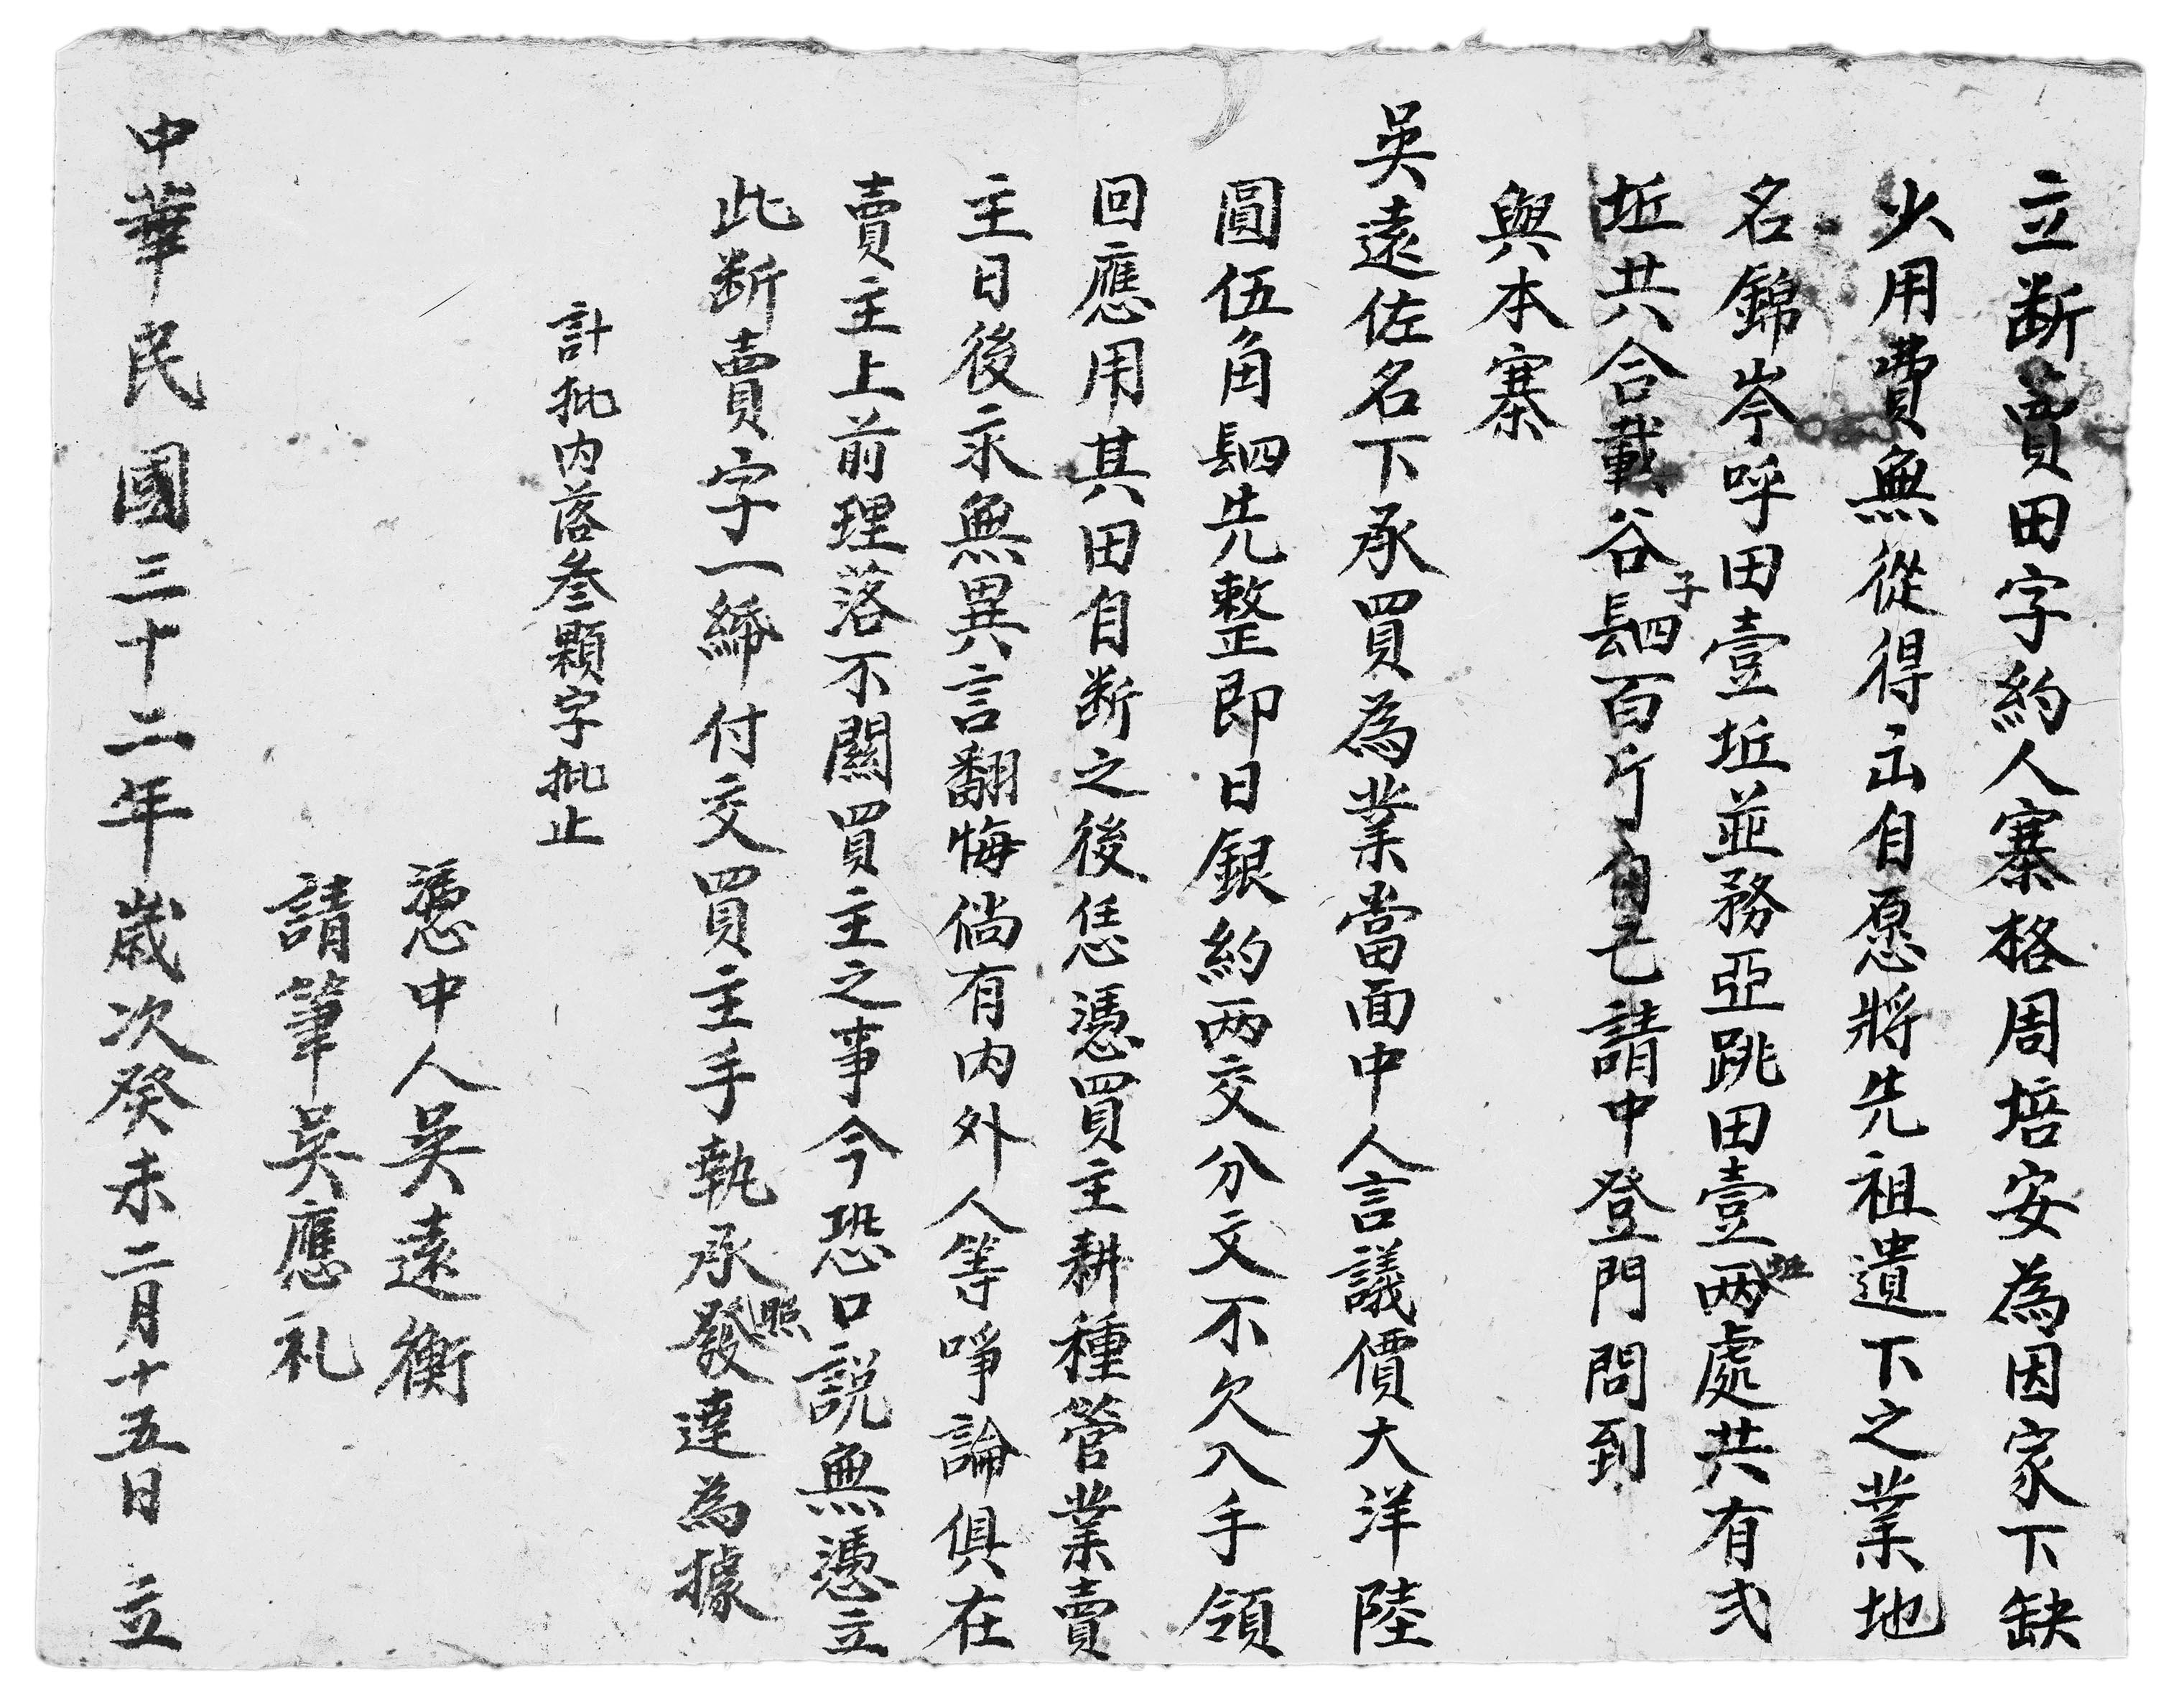 立断賣田字約人寨格周培安為因家下缺
少用費無從得出自愿將先祖遺下之業地
名錦岑呼田壹坵並務亞跳田壹坵两處共有弍
坵共合載谷子𦘺百斤自己請中登門問到
與本寨
吳遠佐名下承買為業當面中人言議價大洋陸
圓伍角𦘺先整即日銀約两交分文不欠入手領
回應用其田自断之後恁憑買主耕種管業賣
主日後永無異言翻悔倘有内外人等啳論俱在
賣主上前理落不關買主之事今恐口説無憑立
此断賣字一紙付交買主手執永照發達為據
計批内落叁顆字批止
憑中人吳遠衡
請筆吳應礼
中華民國三十二年歲次癸未二月十五日 立